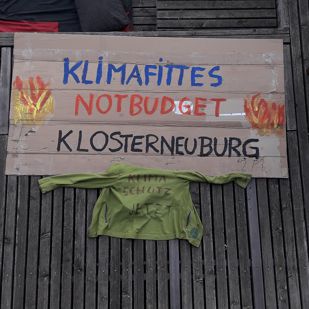 KLIMAFITTES
NOTBUDGET
KLOSTERNEUBURG
KLIMA
SCHUTZ
JETZT